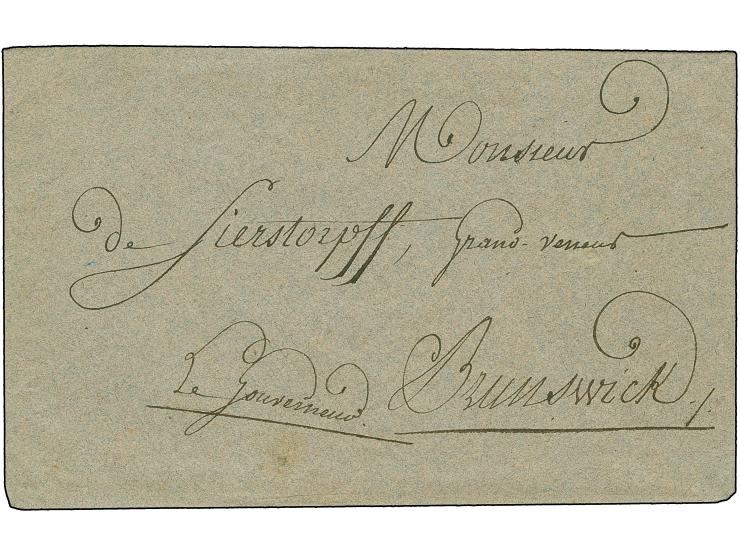 Monsieur
de Sierstorpff, Grand-veneur
Le Gouverneur.
Brunswick./.